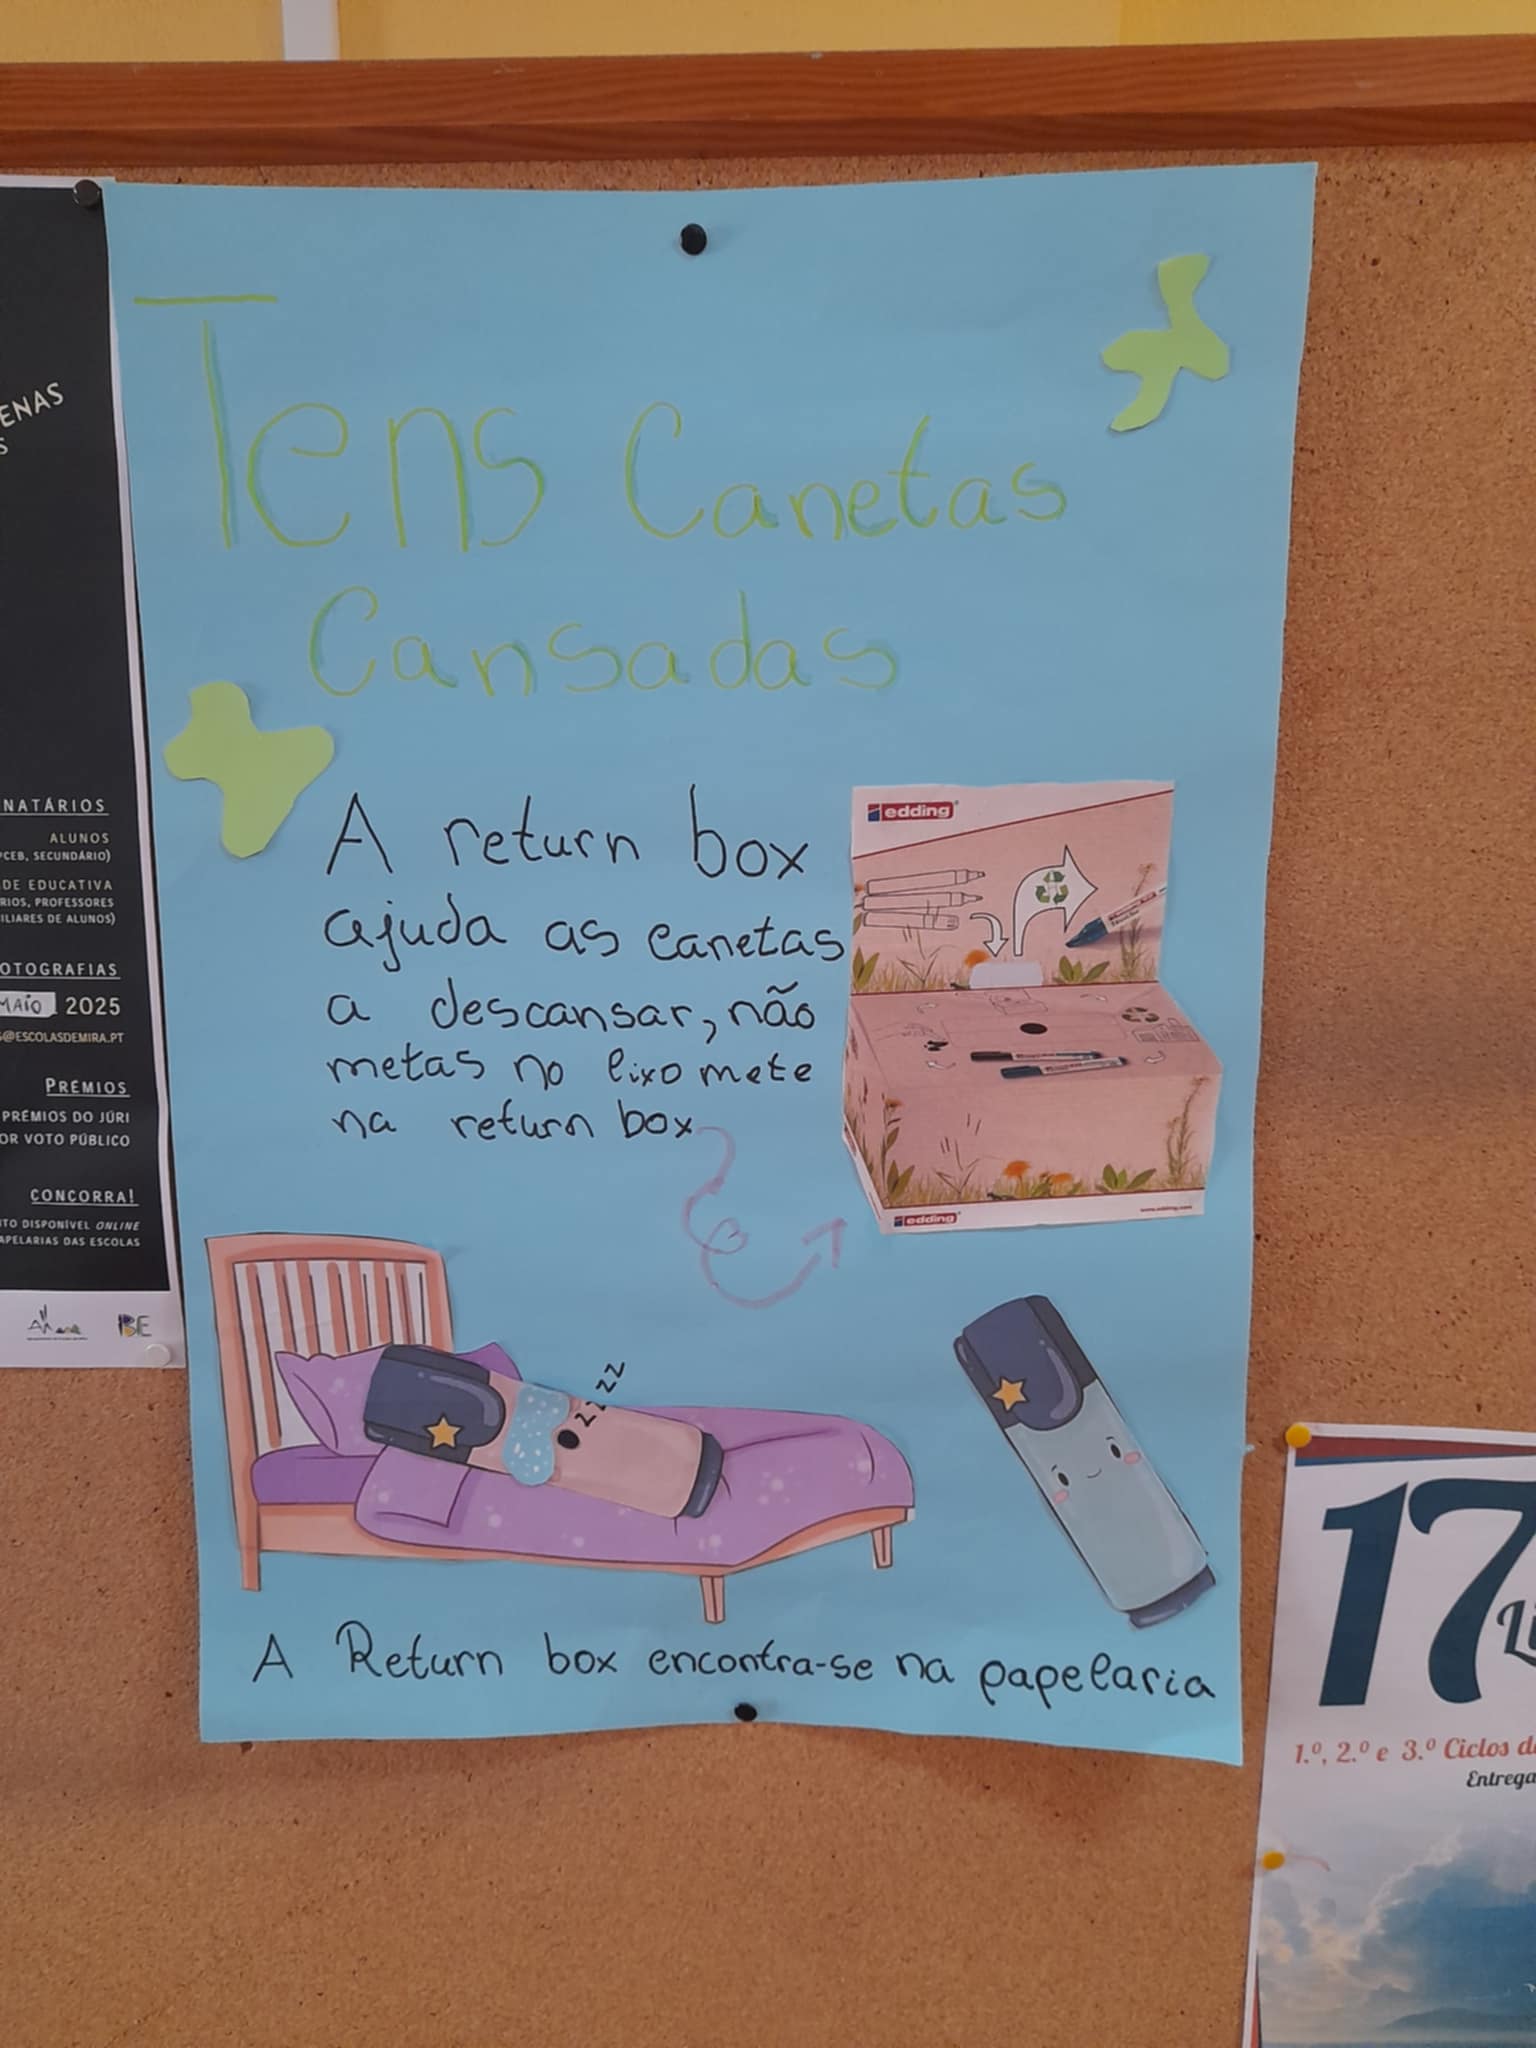 ENAS
S
NATÁRIOS
ALUNOS
CEB, SECUNDÁRIO)
DE EDUCATIVA
RIOS, PROFESSORES
ILIARES DE ALUNOS)
OTOGRAFIAS
MAIO 2025
@ESCOLASDEMIRA.PT
PRÉMIOS
PRÉMIOS DO JÚRI
OR VOTO PÚBLICO
CONCORRA!
TO DISPONÍVEL ONLINE
APELARIAS DAS ESCOLAS
BE
Tens Canetas
Cansadas
A return box
ajuda as canetas
a descansar, não
metas no lixo mete
na return box
edding
edding
www.edding.com
zzzzz
A Return box encontra-se na papelaria
17
1.º, 2.º e 3.º Ciclos d
Entrega